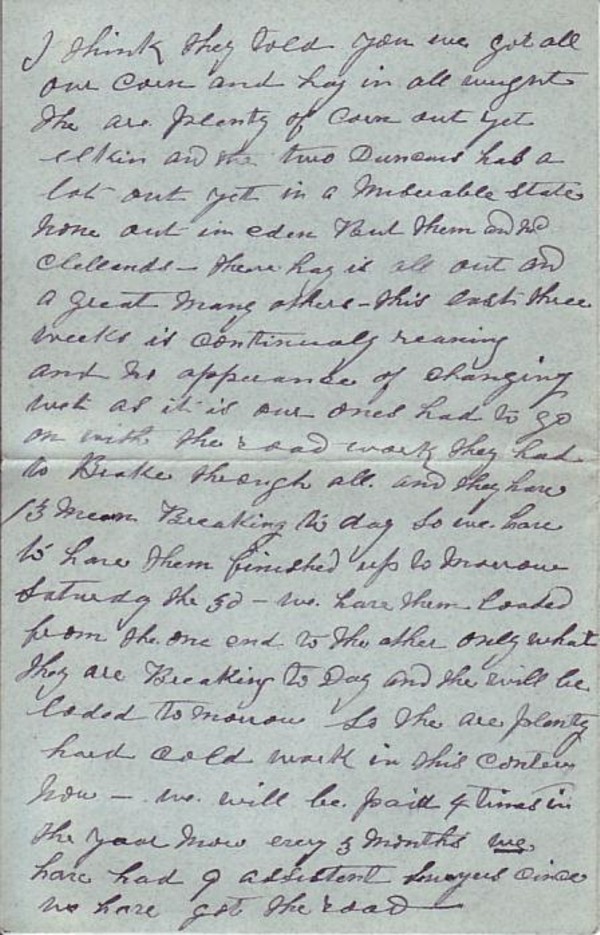 I think they told you we got all
our Corn and hay in all wright
the are plenty of Corn out yet
elkin and the two Duncans has a
lot out yet in a Miserable state
None out in eden But them and Mc
Clellands - there hay is all out and
a great Many others - this last three
weeks is continualy reaning
and no appearance of changing
wet as it is our ones had to go
on with the road work they had
to Brake through all. and they have
13 Mean Breaking to day so we have
to have them finished up to Morrow
Saturday the 3d - we. have them loaded
from the one end to the other only what
they are Breaking to Day and the will be
loded to Morrow So the are plenty
hard cold work in this
now - we. will be. paid 4 times in
the year Now evry 3 Months we
have had 9 assistent since
we have got the road